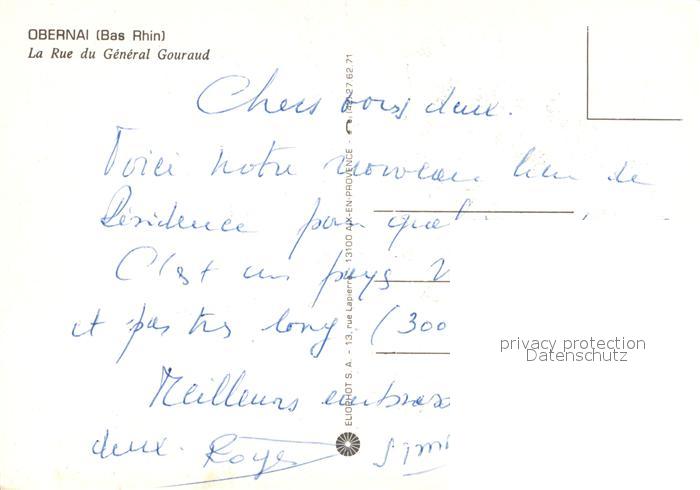 OBERNAI (Bas Rhin)
La Rue du Général Gouraud
Chers vous deux.
Voici notre nouveau lieu de
Résidence pour quel
C'est un pays
et pas très long (300
Meilleurs embrass
deux. Roger
ELIOPHOT S. A. - 13, rue Lapierre - 13100 AIX-EN-PROVENCE - 27.62.71
privacy protection
Datenschutz